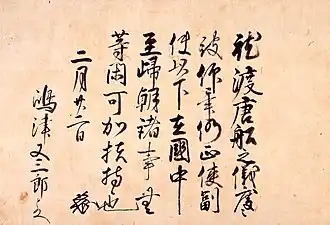 就渡唐船之儀度々
被仰付候正使副
使以下在國中
至歸朝諸事無
等閑可加扶持也
二月廿一日
嶋津又三郎とのへ